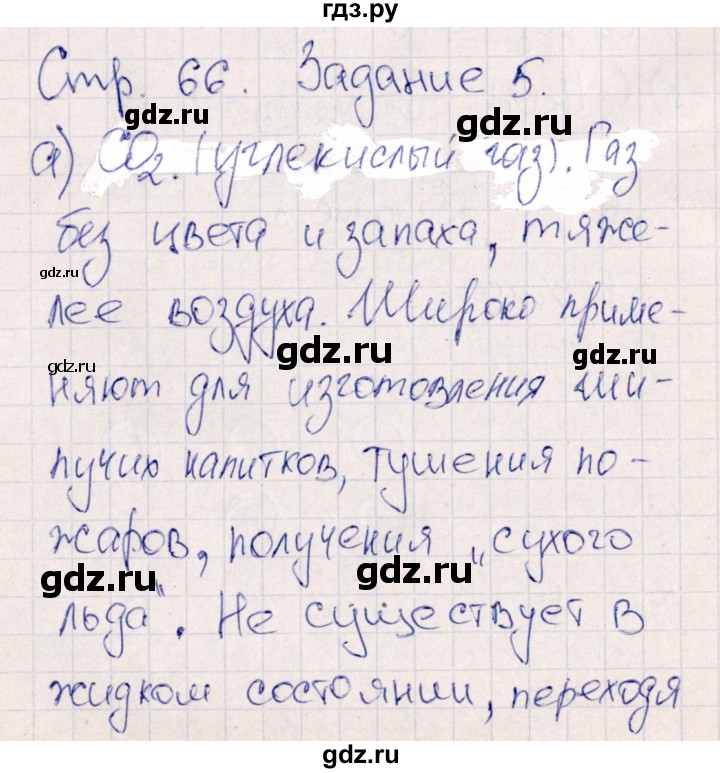 гдз.ру
Стр. 66. Задание 5.
gdz.ru gdz.ru
а) CO2. (углекислый газ). Газ
без цвета и запаха, тяже-
gdz.ru
лее воздуха. Широко приме-
gdz.ru gdz.ru gdz.ru
няют для изготовления ши-
пучих напитков, тушения по-
жаров, получения „сухого
gdz.ru gdz.ru
льда“. Не существует в
жидком состоянии, переходя
gdz.ru